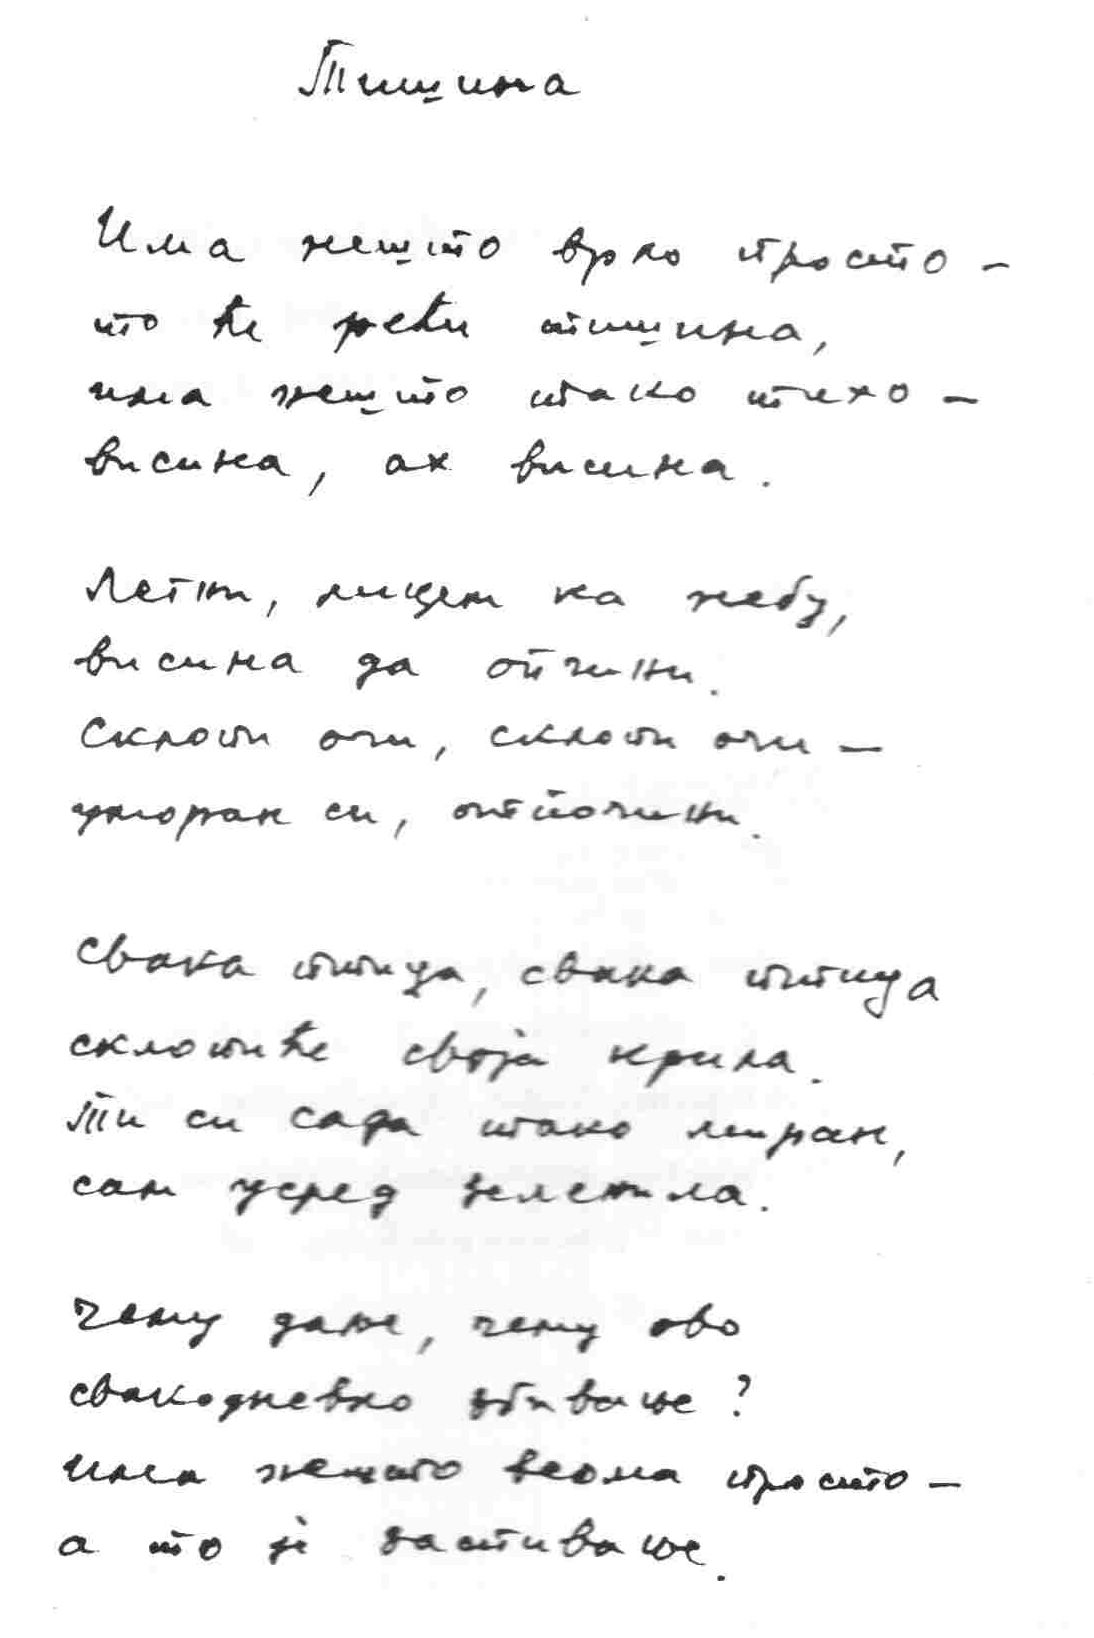 Тишина
Има нешто врло просто –
то ће рећи тишина,
има нешто тако тихо –
висина, ах висина.
Летњи, лицем ка небу,
висина да опчини.
Склопи очи, склопи очи –
уморан си, отпочини.
Свака птица, свака птица
склопиће своја крила.
Ти си сада тако миран,
сам усред зеленила.
Чему даље, чему ово
свакодневно убивање?
Има нешто веома просто –
а то је заспивање.